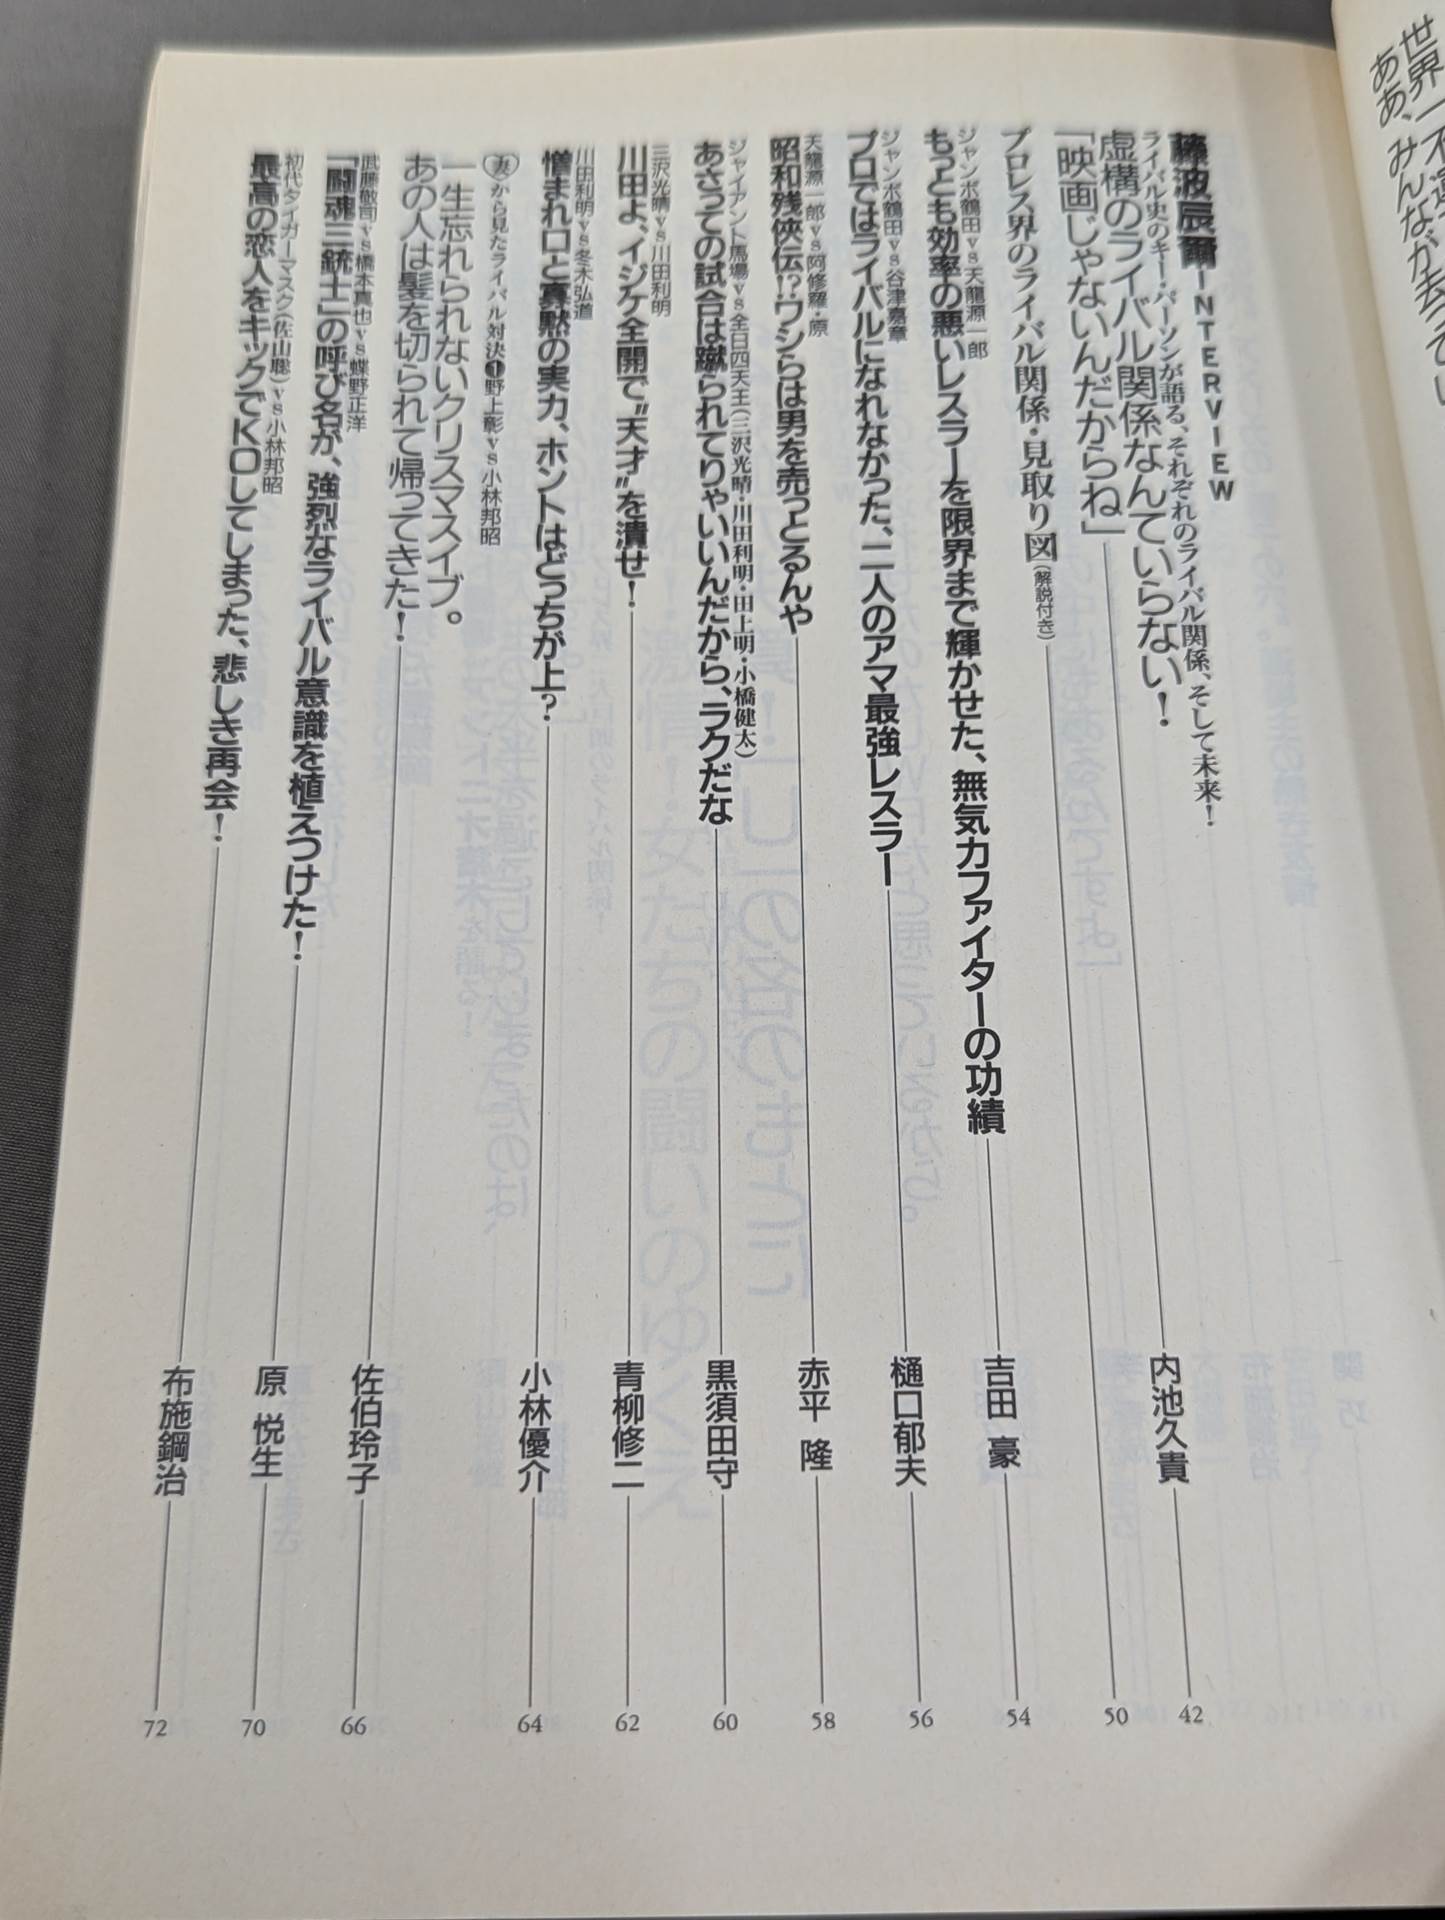 藤波辰爾 INTERVIEW
ライバル史のキー・パーソンが語る、それぞれのライバル関係、そして未来!
虚構のライバル関係なんていらない!
「映画じゃないんだからね」
内池久貴
42
プロレス界のライバル関係・見取り図(解説付き)
50
ジャンボ鶴田vs天龍源一郎
もっとも効率の悪いレスラーを限界まで輝かせた、無気力ファイターの功績
吉田 豪
54
ジャンボ鶴田vs谷津嘉章
プロではライバルになれなかった、二人のアマ最強レスラー
樋口郁夫
56
天龍源一郎vs阿修羅・原
昭和残侠伝!?ワシらは男を売っとるんや
赤平 隆
58
ジャイアント馬場vs全日四天王(三沢光晴・川田利明・田上明・小橋健太)
あさっての試合は蹴られてりゃいいんだから、ラクだな
黒須田守
60
三沢光晴vs川田利明
川田よ、イジケ全開で"天才"を潰せ!
青柳修二
62
川田利明vs冬木弘道
憎まれ口と寡黙の実力、ホントはどっちが上?
小林優介
64
妻から見たライバル対決❶野上彰vs小林邦昭
一生忘れられないクリスマスイブ。
あの人は髪を切られて帰ってきた!
佐伯玲子
66
武藤敬司vs橋本真也vs蝶野正洋
「闘魂三銃士」の呼び名が、強烈なライバル意識を植えつけた!
原 悦生
70
初代タイガーマスク(佐山聡)vs小林邦昭
最高の恋人をキックでKOしてしまった、悲しき再会!
布施鋼治
72